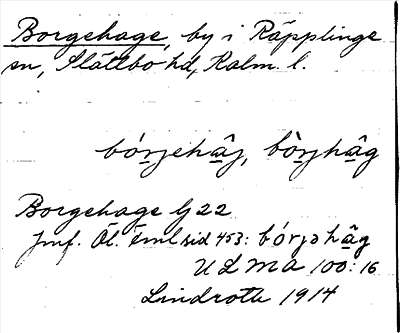 Borgehage, by i Räpplinge
sn, Slättbo hd, Kalm. l.
bórjehâg, bòrjhâg
Borgehage Lj 22
Jmf. Öl. Eml sid 453: bórjəhâg
ULMA 100:16
Lindroth 1914